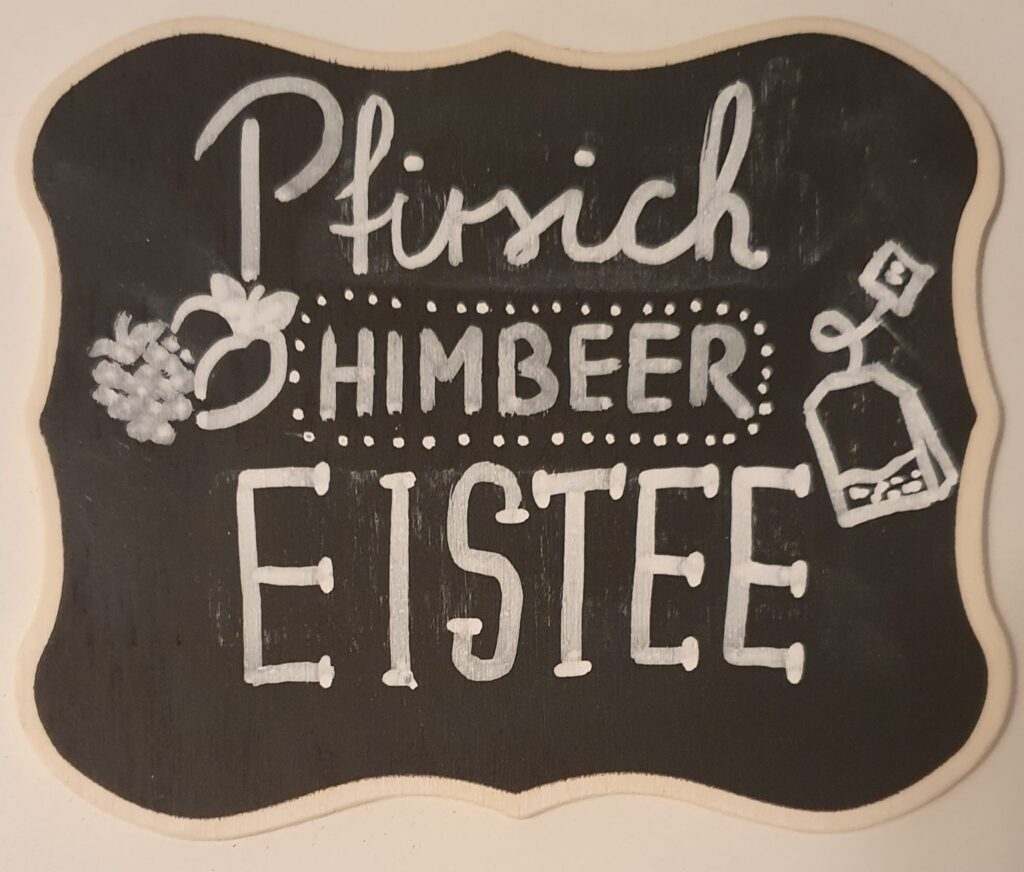 Pfirsich
HIMBEER
EISTEE